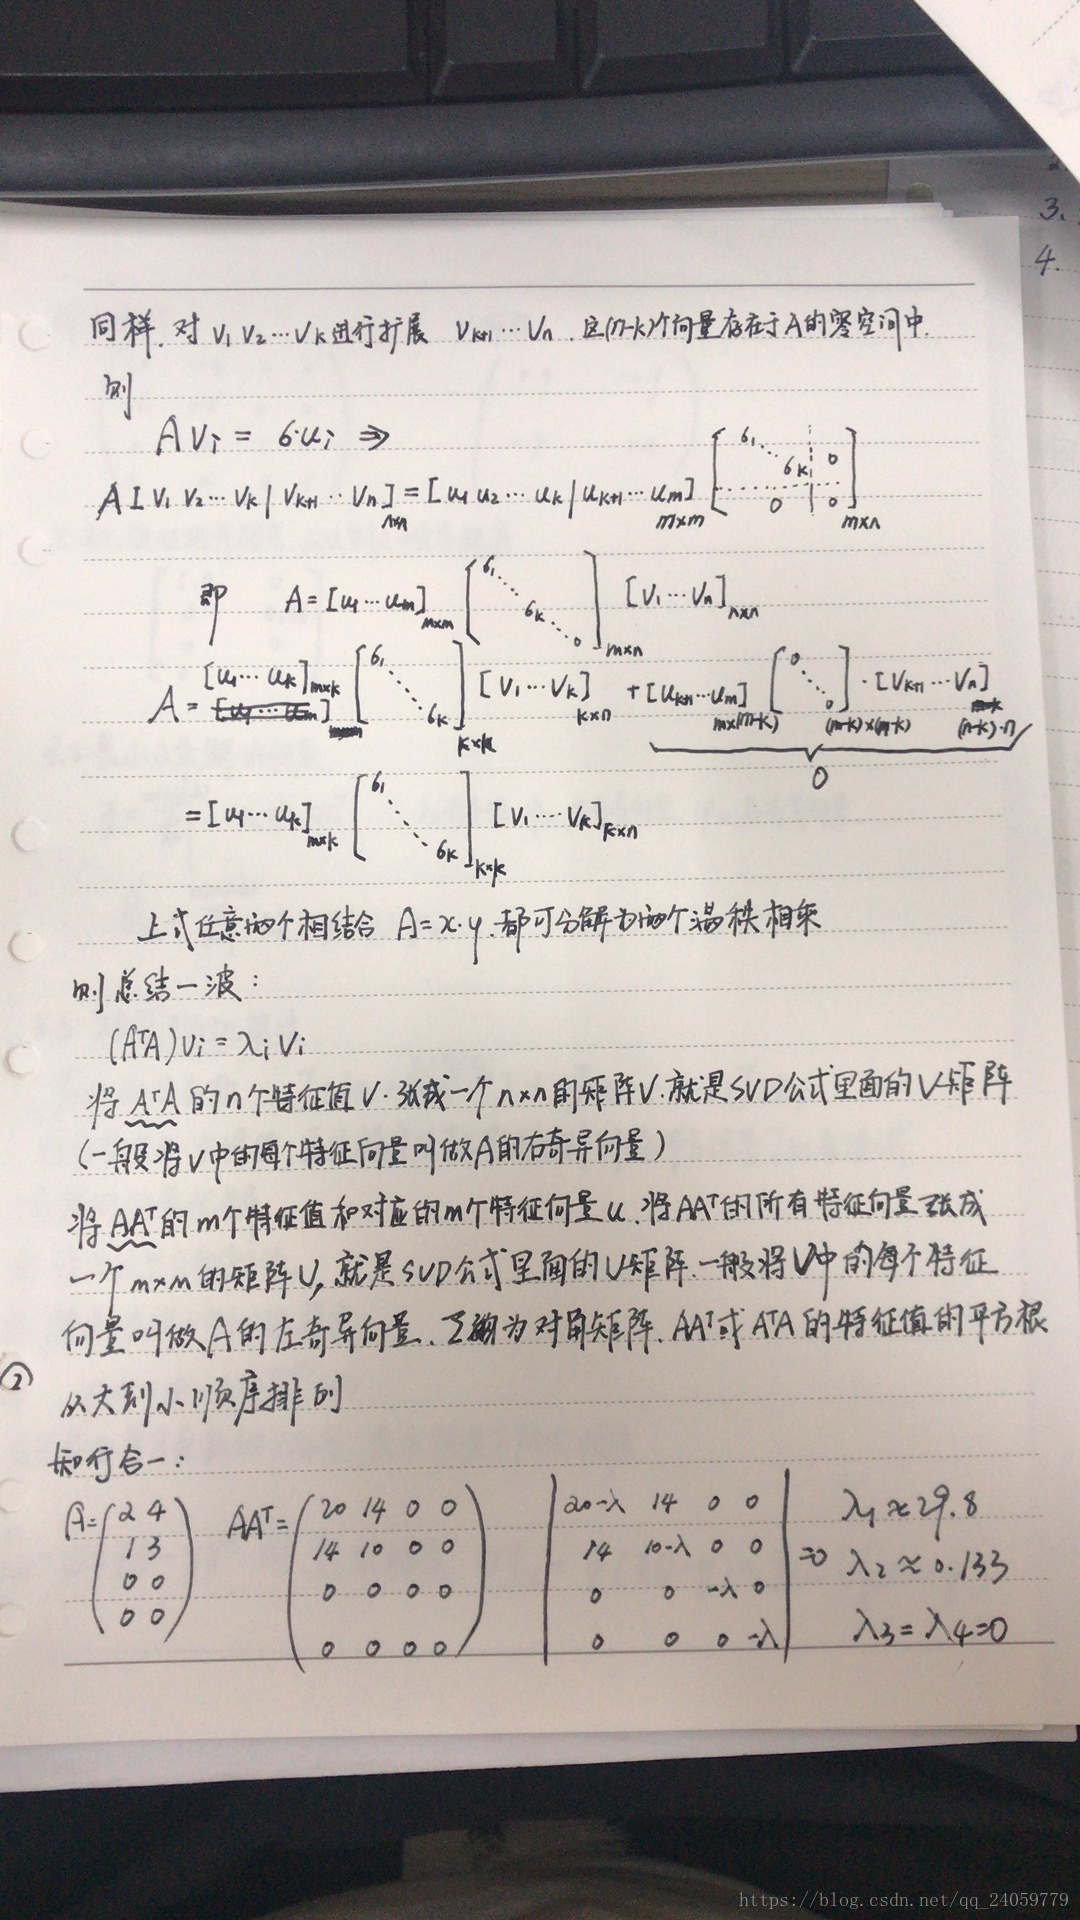 3.
4.
同样.对 v₁ v₂…vₖ进行扩展 vₖ₊₁…vₙ.这(n-k)个向量存在于A的零空间中.
则
Avᵢ = σᵢuᵢ ⇒
A[v₁ v₂…vₖ|vₖ₊₁…vₙ]ₙₓₙ=[u₁ u₂…uₖ|uₖ₊₁…uₘ]ₘₓₘ [σ₁ ⋱ σₖ 0 0 0]ₘₓₙ
即 A=[u₁…uₘ]ₘₓₘ [σ₁ ⋱ σₖ ⋱ 0]ₘₓₙ [v₁…vₙ]ₙₓₙ
A=[u₁…uₖ]ₘₓₖ [σ₁ ⋱ σₖ]ₖₓₖ [v₁…vₖ]ₖₓₙ +[uₖ₊₁…uₘ]ₘₓ₍ₘ₋ₖ₎ [0 ⋱ 0]₍ₘ₋ₖ₎ₓ₍ₙ₋ₖ₎·[vₖ₊₁…vₙ](n-k)·n
0
=[u₁…uₖ]ₘₓₖ [σ₁ ⋱ σₖ]ₖₓₖ [v₁…vₖ]ₖₓₙ
上式任意两个相结合 A=x·y.都可分解为两个满秩相乘
则总结一波:
(AᵀA)vᵢ=λᵢvᵢ
将AᵀA的n个特征值V.张成一个n×n的矩阵V.就是SVD公式里面的V矩阵
(一般将V中的每个特征向量叫做A的右奇异向量)
将AAᵀ的m个特征值和对应的m个特征向量u.将AAᵀ的所有特征向量张成
一个m×m的矩阵U,就是SVD公式里面的U矩阵.一般将U中的每个特征
向量叫做A的左奇异向量.Σ为对角矩阵.AAᵀ或AᵀA的特征值的平方根
② 从大到小顺序排列
知行合一:
A=(2 4 AAᵀ=(20 14 0 0) |20-λ 14 0 0| λ₁≈29.8
1 3 14 10 0 0 14 10-λ 0 0 =0 λ₂≈0.133
0 0 0 0 0 0 0 0 -λ 0
0 0) 0 0 0 0 0 0 0 -λ λ₃=λ₄=0
https://blog.csdn.net/qq_24059779